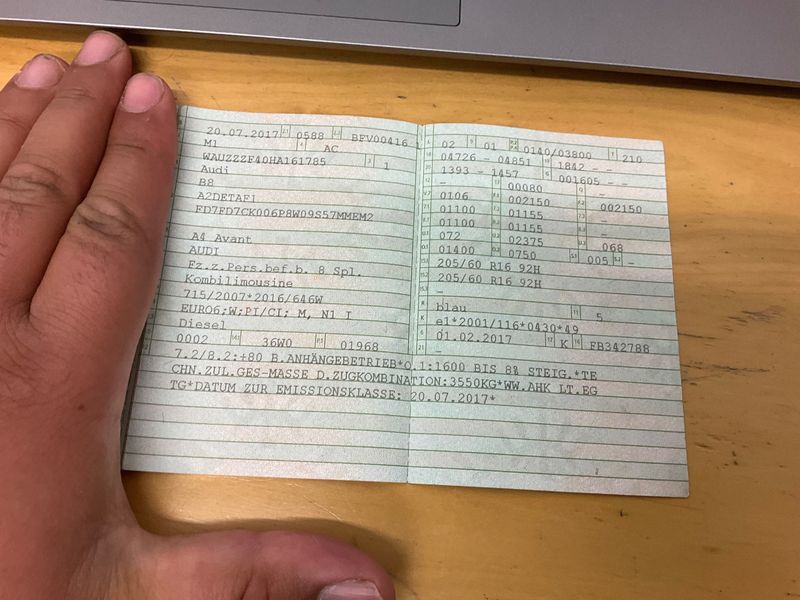 20.07.2017 0588 BFV00416
M1 AC
WAUZZZF40HA161785 1
Audi
B8
A2DETAF1
FD7FD7CK006P8W09S57MMEM2
A4 Avant
AUDI
Fz.z.Pers.bef.b. 8 Spl.
Kombilimousine
715/2007*2016/646W
EURO6;W;PI/CI; M, N1 I
Diesel
0002 36W0 01968
02 01 0140/03800 210
04726 - 04851 1842 - -
1393 - 1457 001605 - -
- 00080 -
0106 002150 002150
01100 01155 -
01100 01155 -
072 02375 068
01400 0750 005 -
205/60 R16 92H
205/60 R16 92H
-
blau 5
e1*2001/116*0430*49
01.02.2017 K FB342788
-
7.2/8.2:+80 B.ANHÄNGEBETRIEB*O.1:1600 BIS 8% STEIG.*TE
CHN.ZUL.GES-MASSE D.ZUGKOMBINATION:3550KG*WW.AHK LT.EG
TG*DATUM ZUR EMISSIONSKLASSE: 20.07.2017*